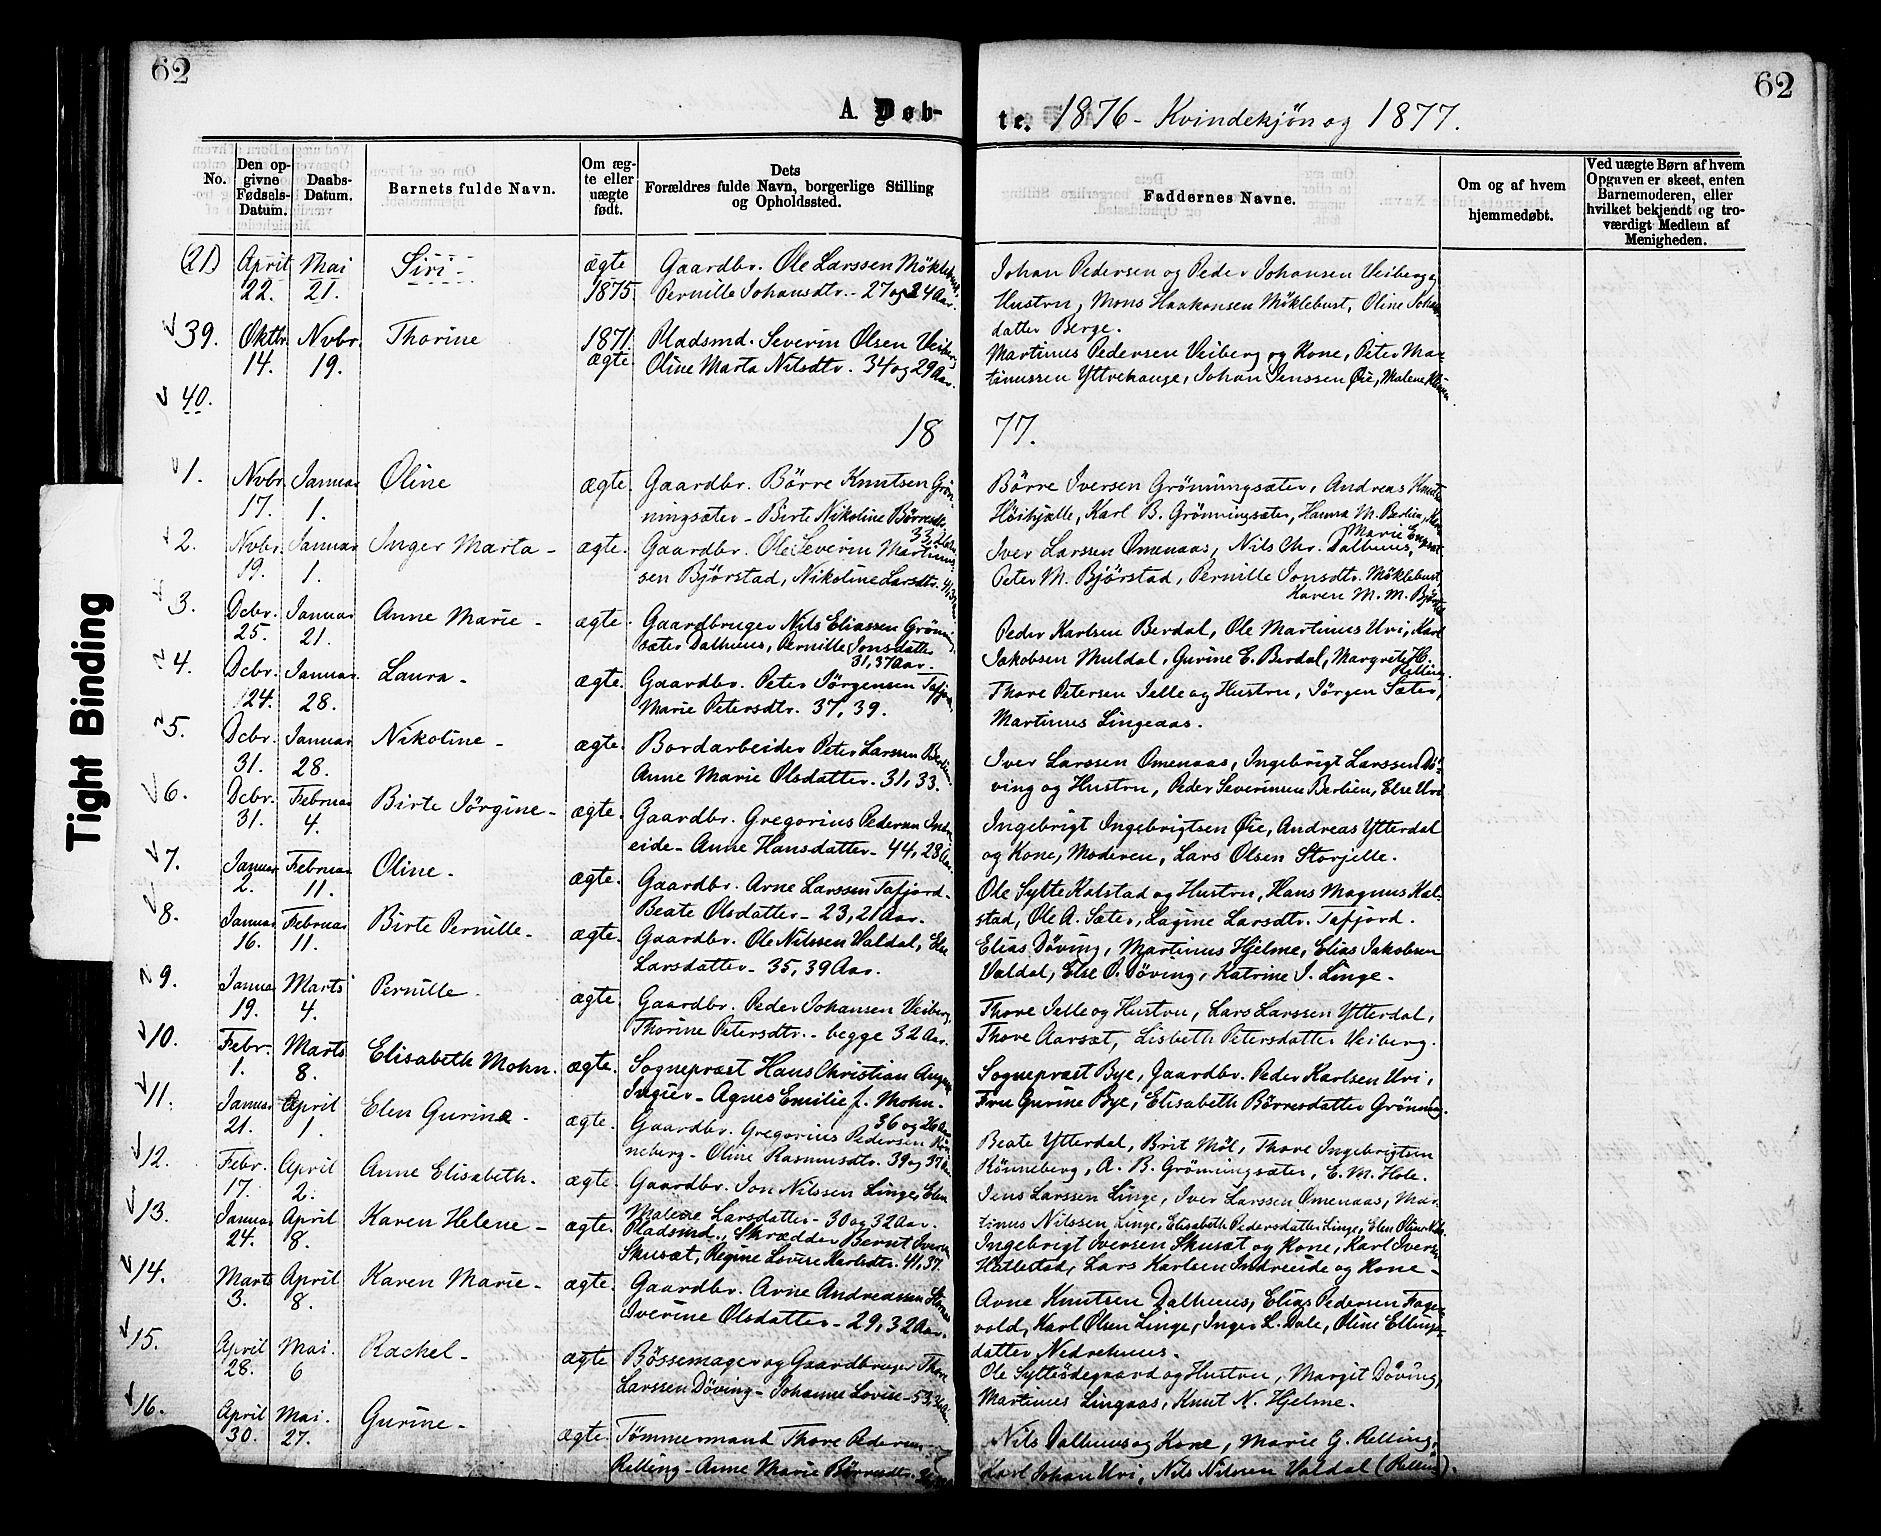 62
62
A. Døb-
te. 1876 - Kvindekjøn og 1877.
No.
Den opgivne Fødsels-Datum.
Daabs-Datum.
Barnets fulde Navn.
Om ægte eller uægte født.
Dets Forældres fulde Navn, borgerlige Stilling og Opholdssted.
Faddernes Navne.
Om og af hvem hjemmedøbt.
Ved uægte Børn af hvem Opgaven er skeet, enten Barnemoderen, eller hvilket bekjendt og troværdigt Medlem af Menigheden.
(21) April 22. Mai 21. Siri - ægte 1875 Gaardbr. Ole Larssen Möklebust,
Pernille Johansdtr. - 27 og 24 Aar.
Johan Pedersen og Peder Johansen Veiberg og
Hustru, Mons Haakonsen Möklebust, Oline Johan
datter Berge.
39. Oktbr. 14. Nvbr. 19. Thorine 1871. ægte Pladsmd. Severin Olsen Veiberg,
Oline Marta Nilsdtr. 34 og 29 Aar.
Martinus Pedersen Veiberg og Kone, Peter Mar-
tinussen Yttrehauge, Johan Jenssen Øie, Malene
40.
1877.
1. Nvbr. 17. Januar 1. Oline ægte. Gaardbr. Börre Knutsen Grön-
ningsæter - Birte Nikoline Börresdtr.
33, 26
Börre Iversen Grönningsæter, Andreas Knuts
Höihjælle, Karl B. Grönningsæter, Hanna M. Berlien,
2. Nvbr. 19. Januar 1. Inger Marta - ægte. Gaardbr. Ole Severin Martinus-
sen Björstad, Nikoline Larsdtr. 41,
Marie
Iver Larssen Omenaas, Nils Chr. Dalhuus,
Peter M. Björstad, Pernille Jonsdtr. Möklebust
Karen M. M. Björstad
3. Dcbr. 25. Januar 21. Anne Marie - ægte. Gaardbruger Nils Eliassen Gröning
sæter Dalhuus, Pernille Jonsdatter
31, 37 Aar.
Peder Karlsen Berdal, Ole Martinus Uri, Karl
Jakobsen Muldal, Gurine E. Berdal, Margrete H.
Relling.
4. Dcbr. 24. Januar 28. Laura - ægte. Gaardbr. Peter Jörgensen Tafjord,
Marie Petersdtr. 37, 39.
Thore Petersen Jelle og Hustru, Jörgen Sæter,
Martinus Lingeaas.
5. Dcbr. 31. Januar 28. Nikoline - ægte. Bordarbeider Peter Larssen Berlien
Anne Marie Olsdatter - 31, 33.
Iver Larssen Omenaas, Ingebrigt Larssen Dö-
ving og Hustru, Peder Severinsen Berlien, Else Uri
6. Dcbr. 31. Februar 4. Birte Jörgine - ægte. Gaardbr. Gregorius Pedersen Indre
eide - Anne Hansdatter - 44, 28 Aar.
Ingebrigt Ingebrigtsen Øie, Andreas Ytterdal
og Kone, Moderen, Lars Olsen Storjelle.
7. Januar 2. Februar 11. Oline - ægte. Gaardbr. Arne Larssen Tafjord.
Beate Olsdatter - 23, 21 Aar.
Ole Sylte Kalstad og Hustru, Hans Magnus Kal-
stad, Ole A. Sæter, Lagine Larsdtr. Tafjord.
8. Januar 16. Februar 11. Birte Pernille - ægte. Gaardbr. Ole Nilssen Valdal, Else
Larsdatter - 35, 39 Aar.
Elias Döving, Martinus Hjelme, Elias Jakobsen
Valdal, Else P. Döving, Katrine J. Linge -
9. Januar 19. Marts 4. Pernille - ægte. Gaardbr. Peder Johansen Veiberg,
Thorine Petersdtr. - begge 32 Aar.
Thore Jelle og Hustru, Lars Larssen Ytterdal,
Thore Aarsæt, Lisbeth Petersdatter Veiberg.
10. Febr. 1. Marts 8. Elisabeth Mohn. ægte. Sognepræst Hans Christian August
Ingier - Agnes Emilie f. Mohn.
36 og 26 Aar
Sognepræst Bye, Gaardbr. Peder Karlsen Uri,
Fru Gurine Bye, Elisabeth Börresdatter Grönning.
11. Januar 21. April 1. Elen Gurine - ægte. Gaardbr. Gregorius Pedersen Rön-
neberg - Oline Rasmusdtr. 39 og 37 Aar
Beate Ytterdal, Brit Möl, Thore Ingebrigtsen
Rönneberg, A. B. Grönningsæter, E. M. Hole.
12. Febr. 17. April 2. Anne Elisabeth. ægte. Gaardbr. Jon Nilssen Linge, Elen
Malene Larsdatter - 30 og 32 Aar.
Jens Larssen Linge, Iver Larssen Omenaas, Mar-
tinus Nilssen Linge, Elisabeth Pedersdatter Linge, Elen Oline
13. Januar 24. April 8. Karen Helene - ægte. Pladsmd., Skrædder Bernt Iversen
Skusæt, Regine Lovise Karlsdtr. 41, 37.
Ingebrigt Iversen Skusæt og Kone, Karl Ivers.
Hatlestad, Lars Karlsen Indreeide og Kone -
14. Marts 3. April 8. Karen Marie - ægte. Gaardbr. Arne Andreassen
Iverine Olsdatter - 29, 32 Aar.
Arne Knutsen Dalhuus, Elias Pedersen Fager-
vold, Karl Olsen Linge, Inger L. Dale, Oline Ellings-
datter Nedrehuus.
15. April 28. Mai. 6 Rachel - ægte Bössemager og Gaardbruger Thore
Larssen Döving - Johanne Lovise - 53,
Ole Sylteödegaard og Hustru, Margit Döving,
Martinus Lingaas, Knut N. Hjelme.
16. April 30. Mai. 27. Gurine - ægte. Tömmermand Thore Pedersen
Relling - Anne Marie Börresdtr.
Nils Dalhuus og Kone, Marie G. Relling,
Karl Johan Uri, Nils Nilssen Valdal (Relling).
Tight Binding